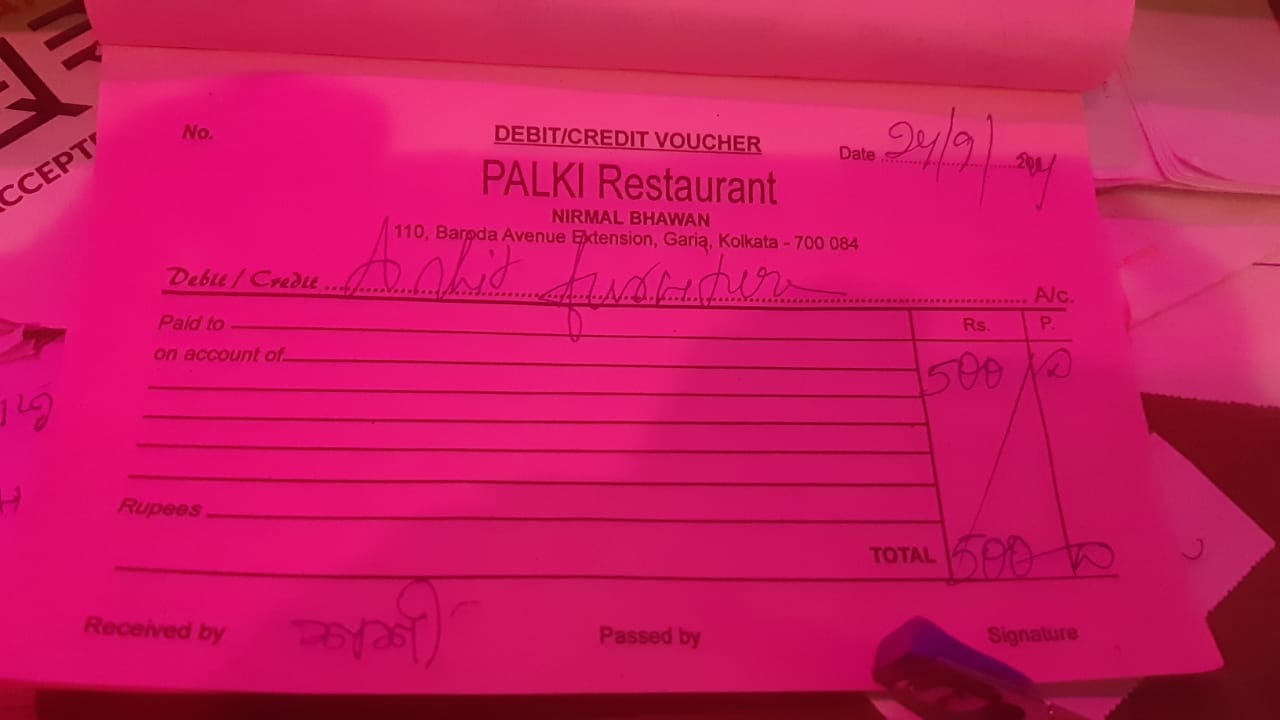 No.
DEBIT/CREDIT VOUCHER
Date 24/9/
PALKI Restaurant
NIRMAL BHAWAN
110, Baroda Avenue Extension, Garia, Kolkata - 700 084
Debit / Credit A/c.
Paid to Rs. P.
on account of 500
Rupees
TOTAL 500
Received by Passed by Signature